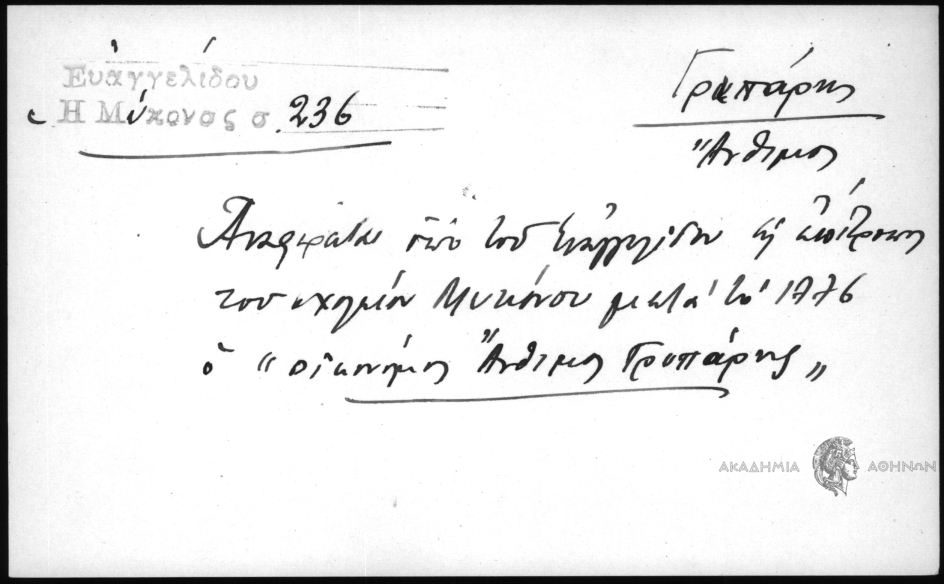 Ευαγγελίδου
Η Μύκονος σ. 236
Γρυπάρης
Ἄνθιμος
Ἀναφέρεται ὑπὸ τοῦ Εὐαγγελίδου ὡς ἐπίτροπος
του σχολείου Μυκόνου μετὰ τὸ 1776
ὁ "οἰκονόμος Ἄνθιμος Γρυπάρης"
ΑΚΑΔΗΜΙΑ ΑΘΗΝΩΝ